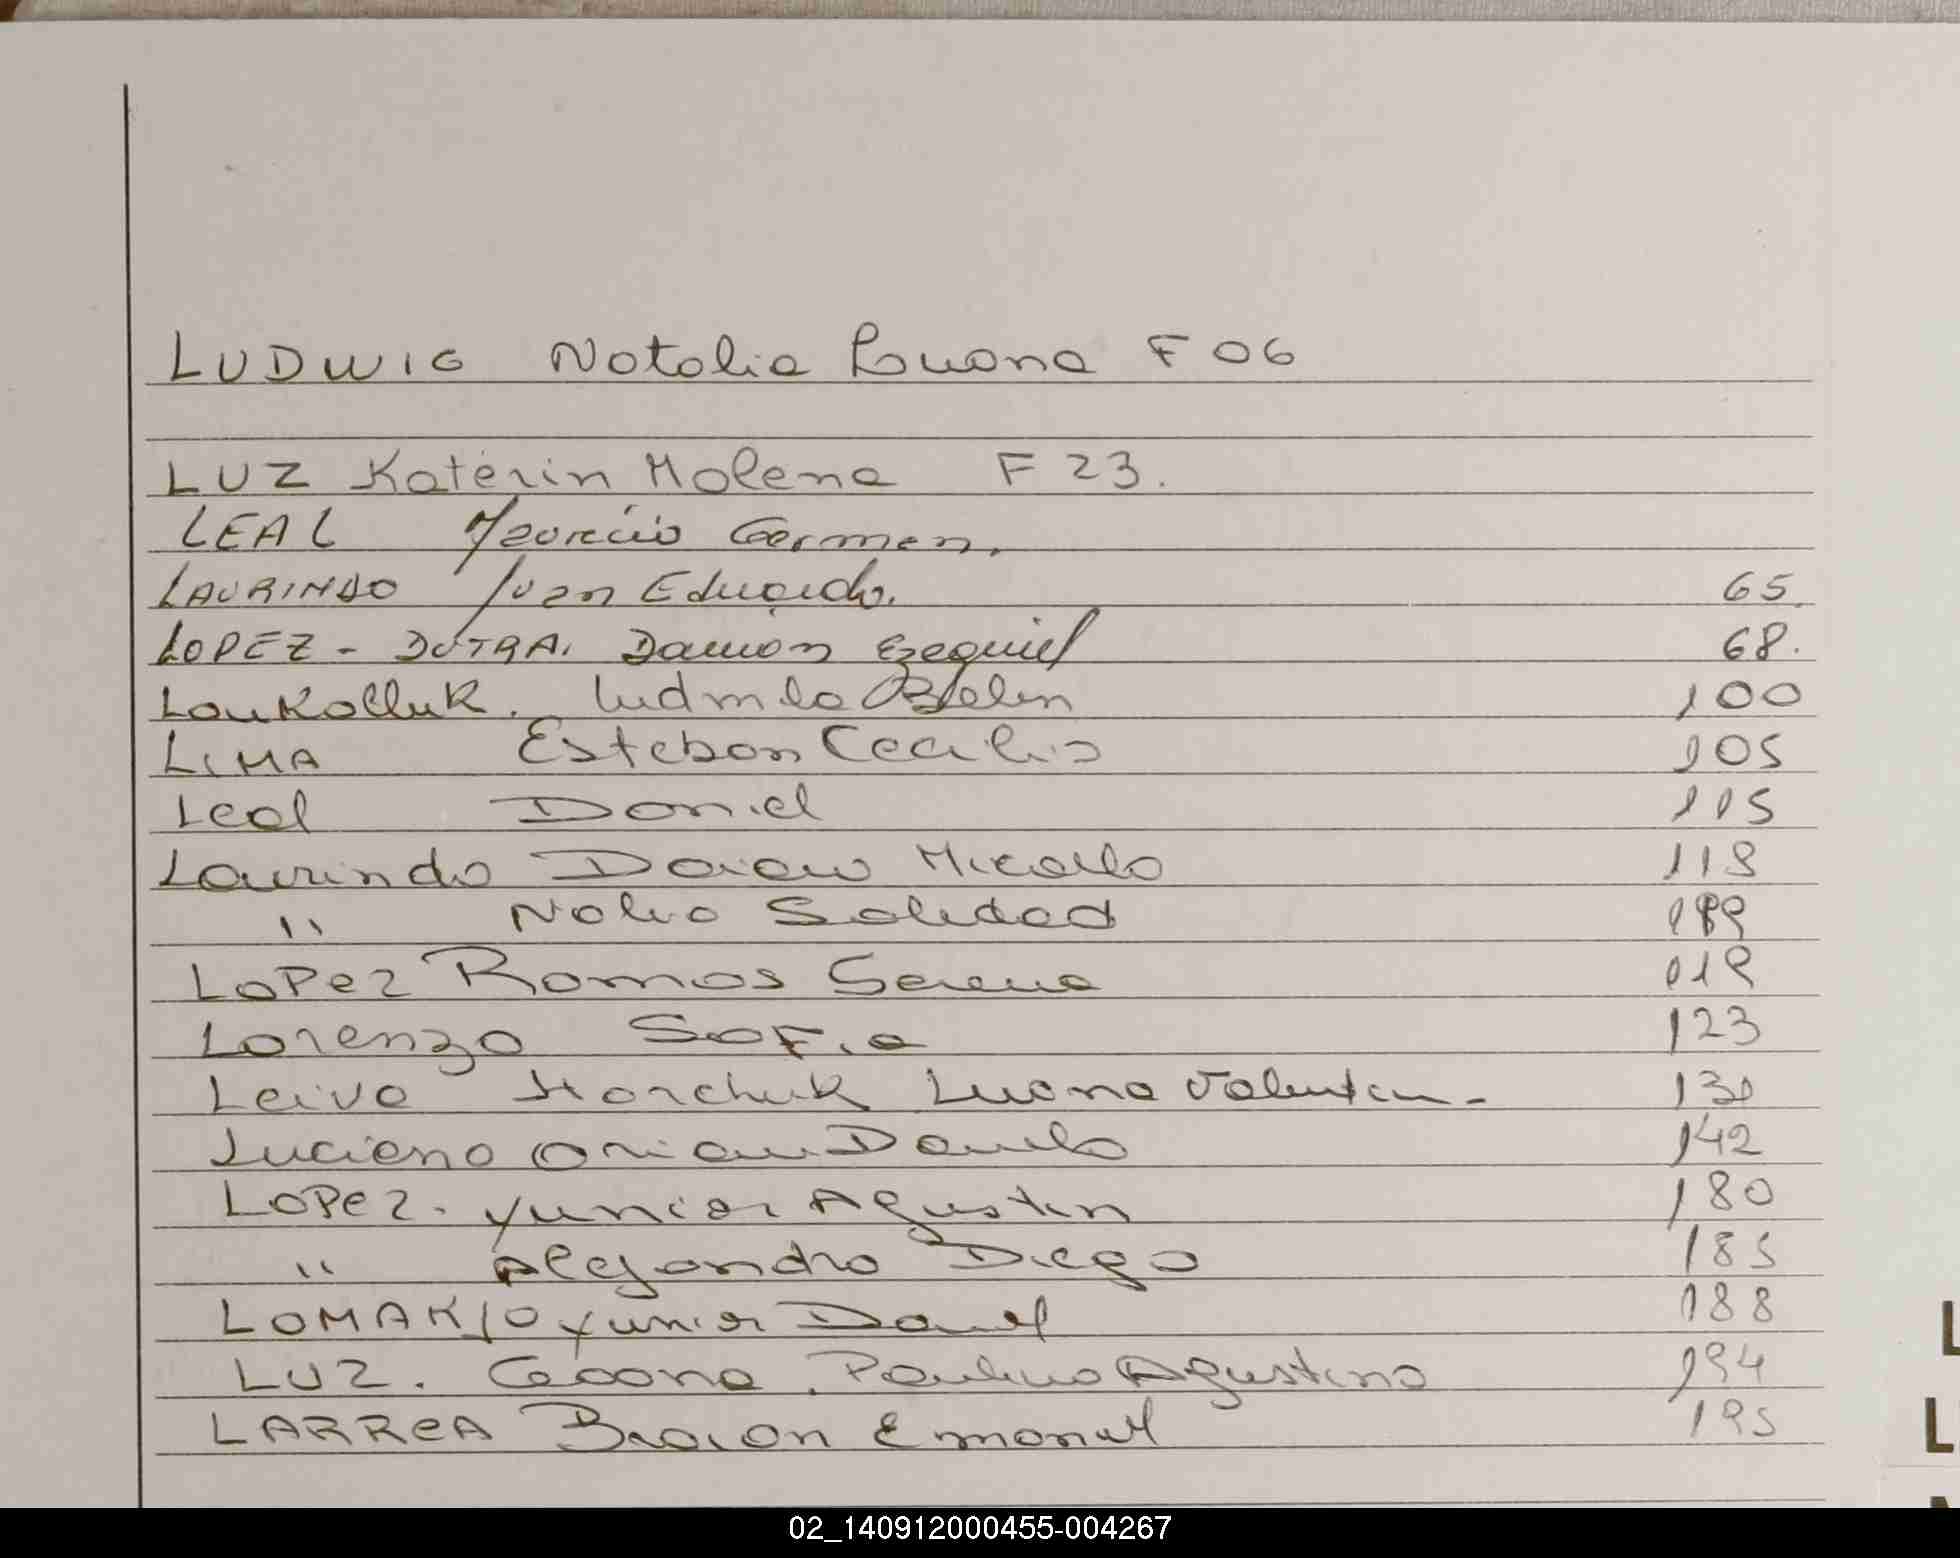 LUDWIG Natalia Luana F 06
LUZ Katerin Malena F 23.
LEAL Mauricio German.
LAURINDO Juan Eduardo. 65.
LOPEZ - DUTRA. Damian Ezequiel 68.
Ludmila Belen 100
LIMA Esteban Cecilio 105
Leal Daniel 115
Laurindo Micaela 118
" Nalia Soledad
LoPez Ramos Serena 119
Lorenzo SoFia 123
Leiva Luana Valentin - 130
Luciano Orian Danilo 142
LOPez. Yunior Agustin 180
" Alejandro Diego 185
LOMAKJO Yunior Daniel 188
LUZ. Geoana. Paulino Agustino 194
LARReA Braian Emanuel 195
L
L
02_140912000455-004267